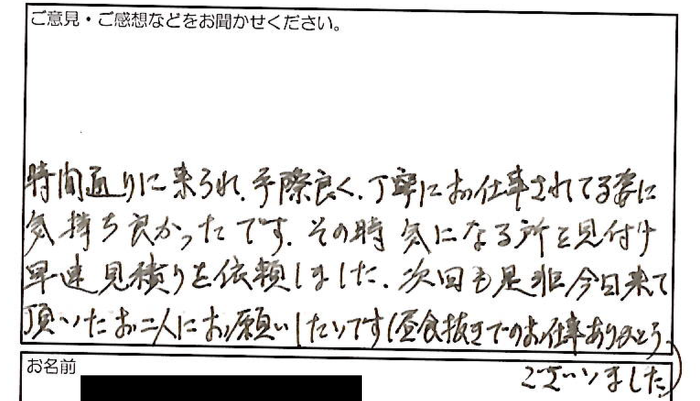 ご意見・ご感想などをお聞かせください。
時間通りに来られ、手際良く、丁寧にお仕事されてる姿に
気持ち良かったです。その時気になる所を見付け
早速見積りを依頼しました。次回も是非今日来て
頂いたお二人にお願いしたいです(昼食抜きでのお仕事ありがとう
ございました)
お名前